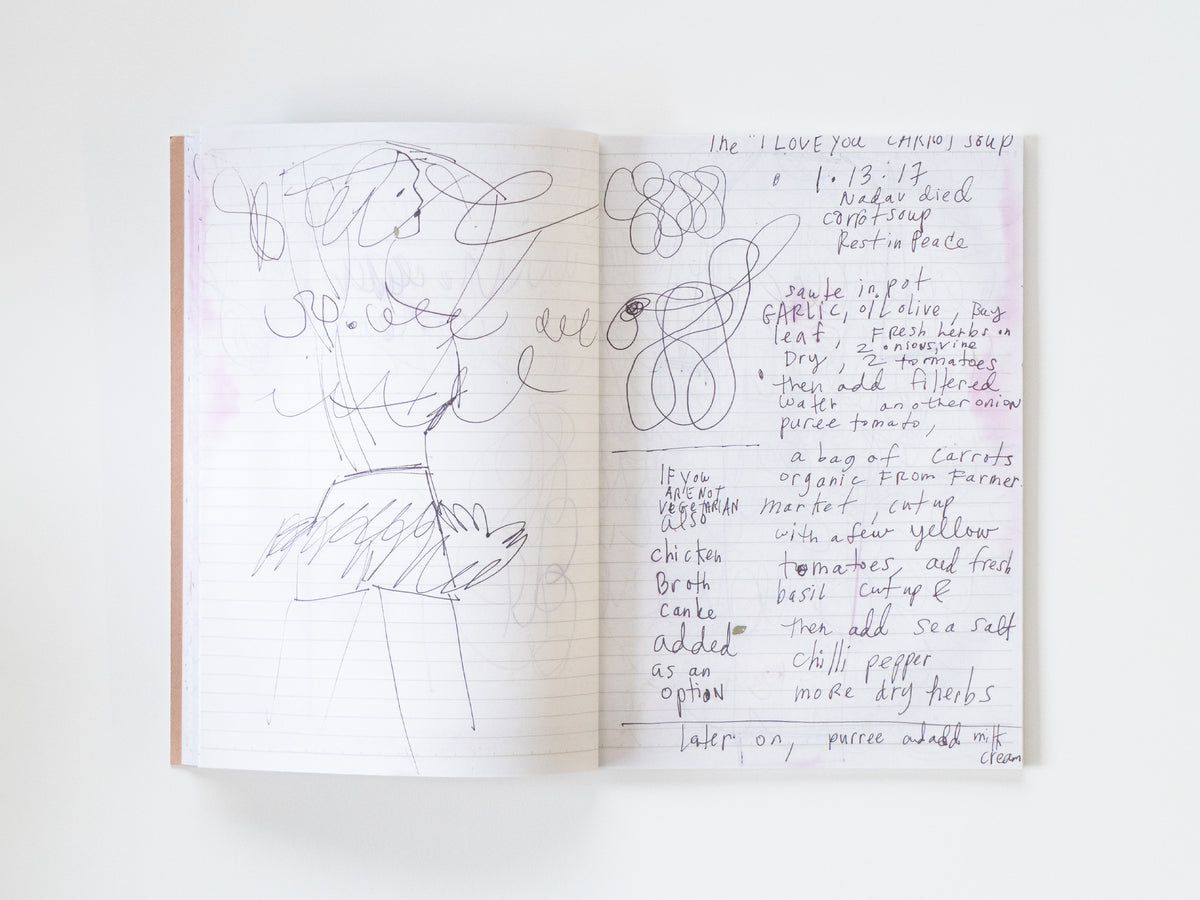 The "I LOVE you CARROT soup
1.13:17
Nadav died
corrot soup
Rest in Peace
saute in pot
GARLIC, oil olive, Bay
leaf, Fresh herbs on
Dry, 2 onions, vine
2 tormatoes
then add filtered
water another onion
puree tomato,
a bag of carrots
organic FROM Farmer
market, cut up
with a few yellow
tomatoes, and fresh
basil cut up &
then add sea salt
chilli pepper
more dry herbs
IF you
ARE NOT
VEGETARIAN
also
chicken
Broth
can be
added
as an
option
Later on, purree and add milk
cream